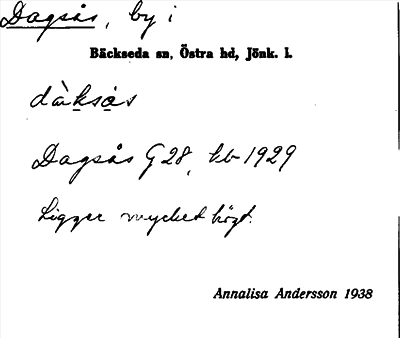 Dagsås, by i
Bäckseda sn, Östra hd, Jönk. l.
dàksås
Dagsås G 28, kb 1929
Ligger mycket högt.
Annalisa Andersson 1938